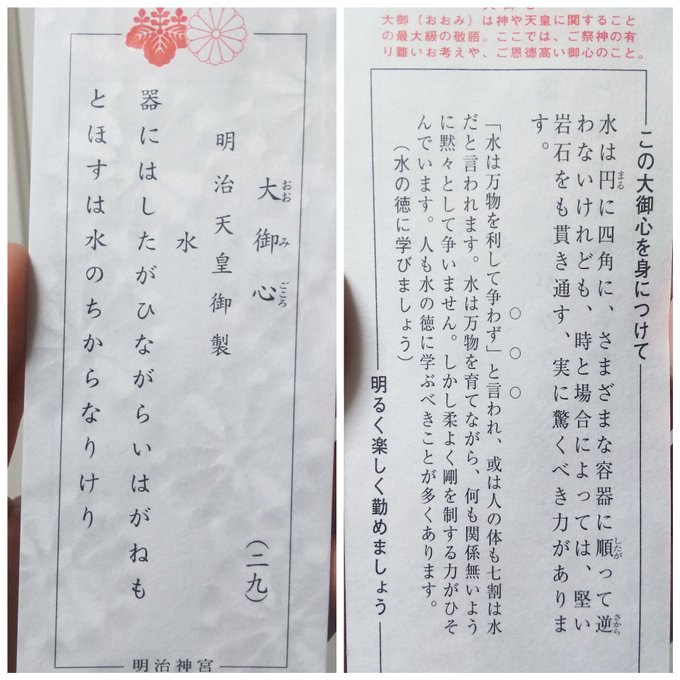 大御心
おおみごころ
明治天皇御製
水
器にはしたがひながらいはがねも
とほすは水のちからなりけり
(二九)
明治神宮
大御(おおみ)は神や天皇に関すること
の最大級の敬語。ここでは、ご祭神の有
り難いお考えや、ご恩徳高い御心のこと。
この大御心を身につけて
水は円に四角に、さまざまな容器に順って逆
まる
したが
さから
わないけれども、時と場合によっては、堅い
岩石をも貫き通す、実に驚くべき力がありま
す。
○ ○ ○
「水は万物を利して争わず」と言われ、或は人の体も七割は水
だと言われます。水は万物を育てながら、何も関係無いよう
に黙々として争いません。しかし柔よく剛を制する力がひそ
んでいます。人も水の徳に学ぶべきことが多くあります。
(水の徳に学びましょう)
明るく楽しく勤めましょう